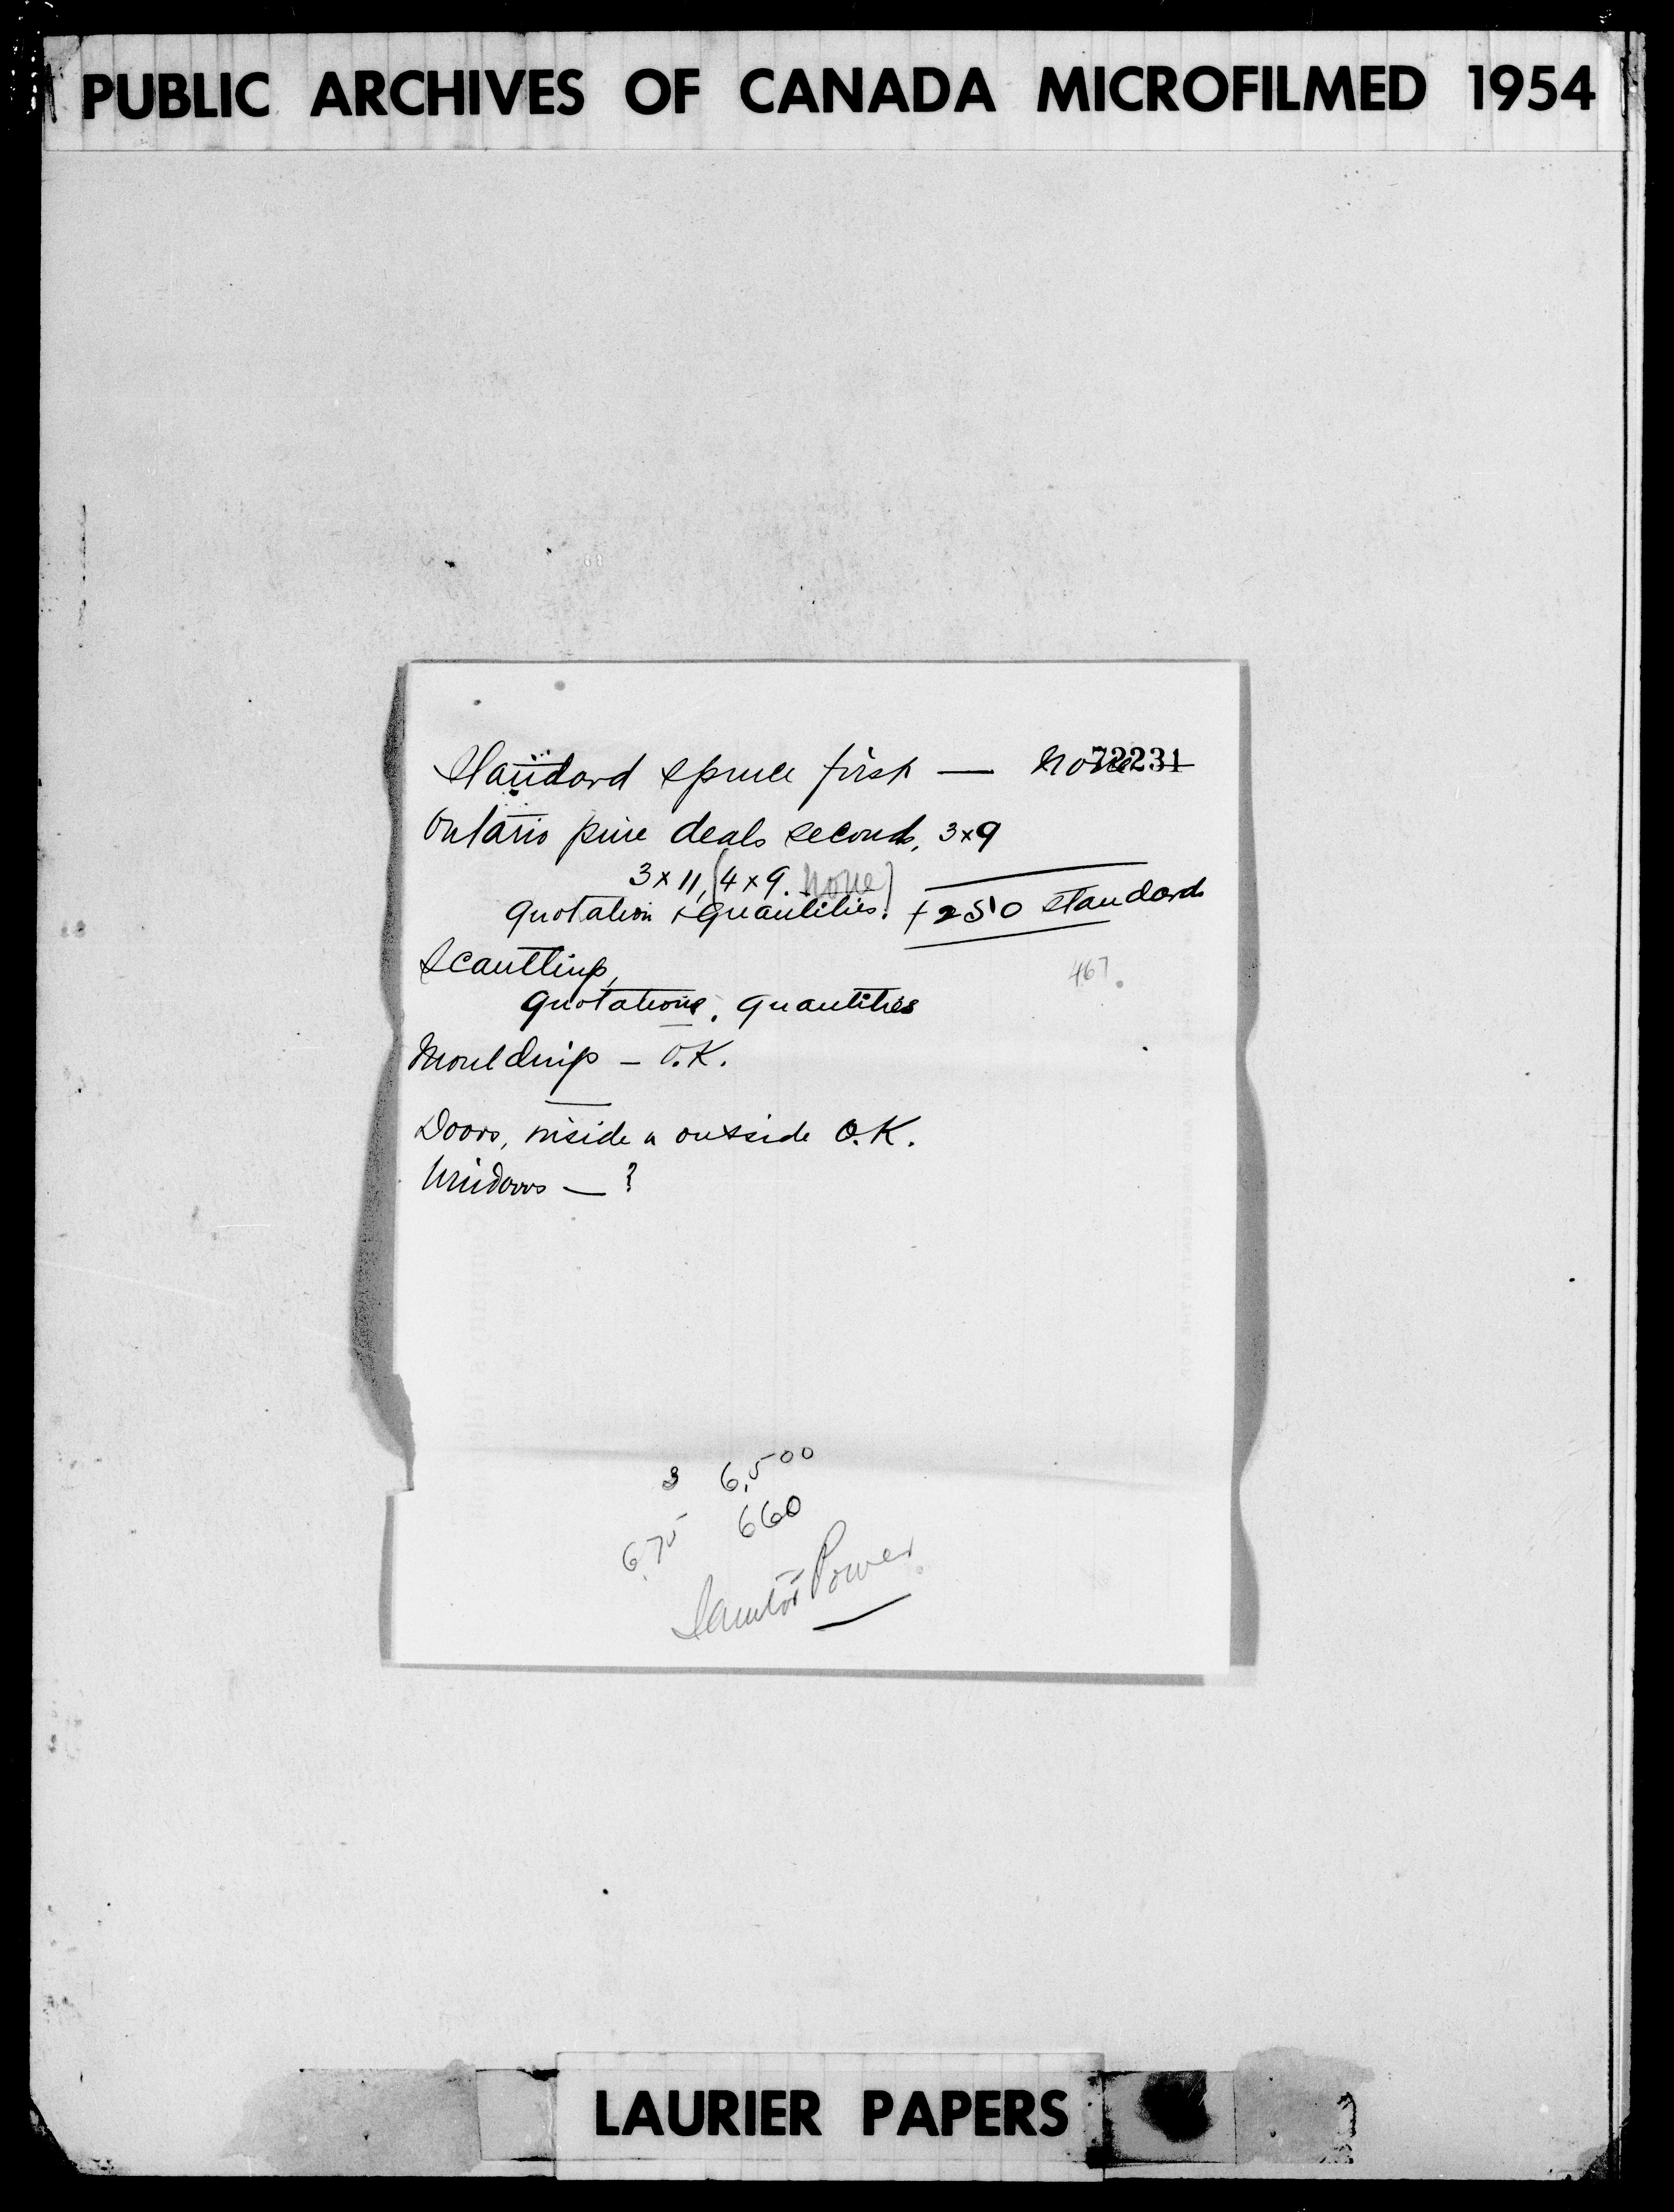 PUBLIC ARCHIVES OF CANADA MICROFILMED 1954
Standard spruce first — None 72231
Ontario pine deals seconds, 3x9
3 x 11, (4 x 9. none)
quotation & quantities. + 250 standards
Scantlings,
467
quotations, quantities
Mouldings — O.K.
Doors, inside & outside O.K.
Windows — ?
3 6,500
6.75 660
Power
LAURIER PAPERS